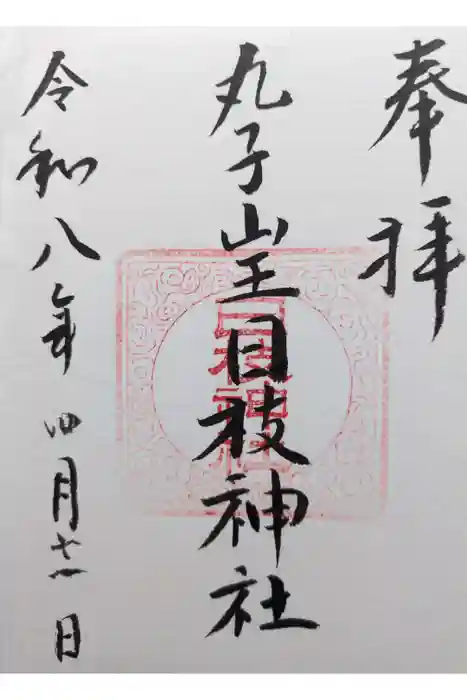 奉拝
丸子山王日枝神社
日枝神社
令和八年四月日